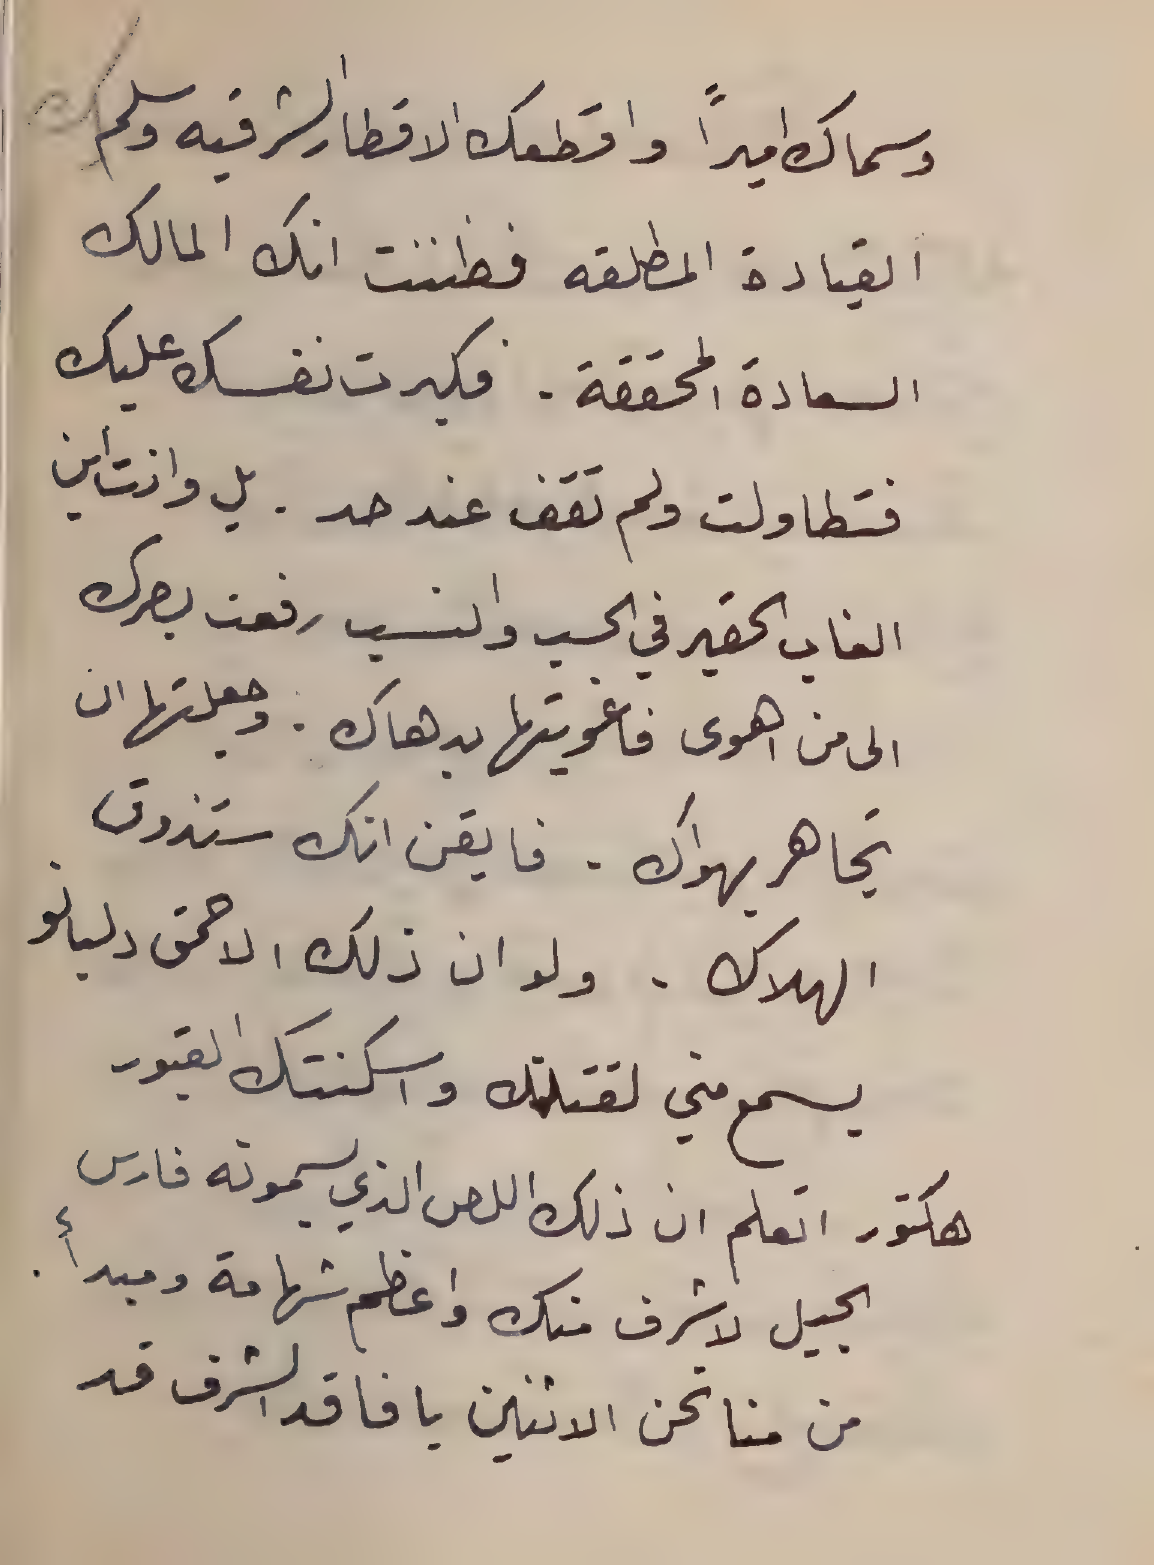 وسماك اميراً واقطعك الاقطار الشرقيه وسلم
القيادة المطلقه فظننت انك المالك
السعادة المحققة . فكبرت نفسك عليك
فتطاولت ولم تقف عند حد . بل وانت ابن
الغاب الحقير في الحسب والنسب رفعت بصرك
الى من اهوى فاغويتها بدهاك . وجعلتها ان
تجاهر بهواك . فايقن انك ستذوق
الهلاك . ولو ان ذلك الاحمق دليانو
يسمع مني لقتلتك واسكنتك القبور
هكتور اتعلم ان ذلك اللص الذي يسمونه فارس
الجبل لاشرف منك واعظم شهامة ومبدأ .
من منا نحن الاثنين يا فاقد الشرف قد